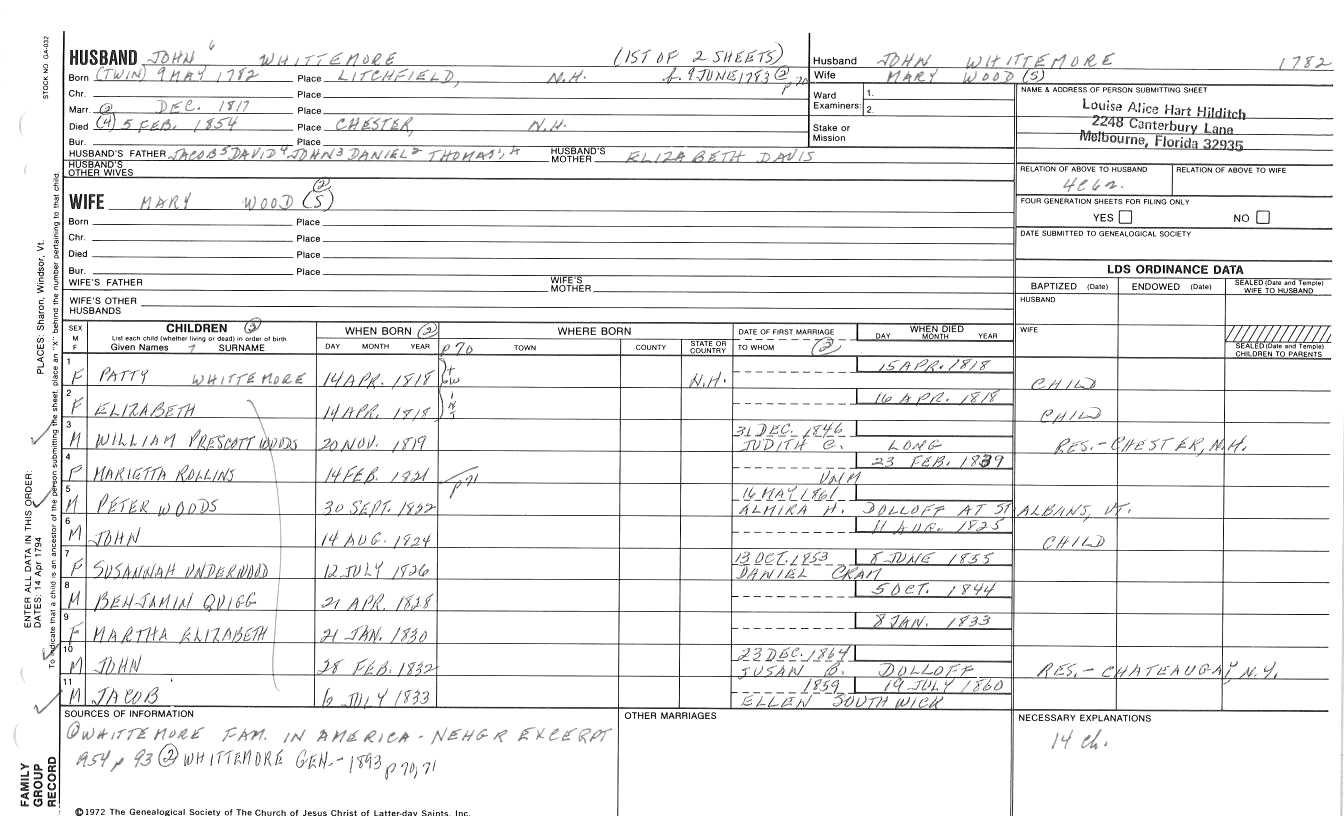 STOCK NO. GA-032
HUSBAND JOHN 6 WHITTEMORE (1ST OF 2 SHEETS)
Born (TWIN) 9 MAY, 1782 Place LITCHFIELD, N.H. 9 JUNE 1783 (2) p. 70
Chr. Place
Marr. (2) DEC. 1817 Place
Died (4) 5 FEB. 1854 Place CHESTER, N.H.
Bur. Place
HUSBAND'S FATHER JACOB 5 DAVID 4 JOHN 3 DANIEL 2 THOMAS 1 HUSBAND'S MOTHER ELIZABETH DAVIS
HUSBAND'S OTHER WIVES
Husband JOHN WHITTEMORE 1782
Wife MARY WOOD (S)
Ward 1.
Examiners: 2.
Stake or
Mission
NAME & ADDRESS OF PERSON SUBMITTING SHEET
Louise Alice Hart Hilditch
2248 Canterbury Lane
Melbourne, Florida 32935
RELATION OF ABOVE TO HUSBAND RELATION OF ABOVE TO WIFE
4C6R.
FOUR GENERATION SHEETS FOR FILING ONLY
YES NO
DATE SUBMITTED TO GENEALOGICAL SOCIETY
WIFE MARY WOOD (S) (2)
Born Place
Chr. Place
Died Place
Bur. Place
WIFE'S FATHER WIFE'S MOTHER
WIFE'S OTHER HUSBANDS
LDS ORDINANCE DATA
BAPTIZED (Date) ENDOWED (Date) SEALED (Date and Temple) WIFE TO HUSBAND
HUSBAND
WIFE
SEALED (Date and Temple) CHILDREN TO PARENTS
SEX M F CHILDREN (2) List each child (whether living or dead) in order of birth Given Names 7 SURNAME
WHEN BORN (2) DAY MONTH YEAR p 70
WHERE BORN TOWN COUNTY STATE OR COUNTRY
DATE OF FIRST MARRIAGE TO WHOM (2)
WHEN DIED DAY MONTH YEAR
1 F PATTY WHITTEMORE 14 APR. 1818 TWINS N.H. 15 APR. 1818 CHILD
2 F ELIZABETH 14 APR. 1818 16 APR. 1818 CHILD
3 M WILLIAM PRESCOTT WOODS 20 NOV. 1819 31 DEC. 1846 JUDITH C. LONG RES.- CHESTER, N.H.
4 F MARIETTA ROLLINS 14 FEB. 1821 p 71 23 FEB. 1839 UNM
5 M PETER WOODS 30 SEPT. 1822 16 MAY 1861 ALMIRA H. DOLLOFF AT ST ALBANS, VT.
6 M JOHN 14 AUG. 1924 11 AUG. 1825 CHILD
7 F SUSANNAH UNDERWOOD 12 JULY 1826 13 OCT. 1853 8 JUNE 1855 DANIEL CRAM
8 M BENJAMIN QUIGG 21 APR. 1828 5 OCT. 1844
9 F MARTHA ELIZABETH 21 JAN. 1830 8 JAN. 1833
10 M JOHN 28 FEB. 1832 23 DEC. 1864 SUSAN B. DOLLOFF RES.- CHATEAUGAY, N.Y.
11 M JACOB 6 JULY 1833 1859 19 JULY 1860 ELLEN SOUTHWICK
SOURCES OF INFORMATION
(1) WHITTEMORE FAM. IN AMERICA - NEHGR EXCERPT
1954 p 93 (2) WHITTEMORE GEN.- 1893 p 70, 71
OTHER MARRIAGES
NECESSARY EXPLANATIONS
14 ch.
©1972 The Genealogical Society of The Church of Jesus Christ of Latter-day Saints, Inc.
ENTER ALL DATA IN THIS ORDER:
DATES: 14 Apr 1794
PLACES: Sharon, Windsor, Vt.
To indicate that a child is an ancestor of the person submitting the sheet, place an "X" behind the number pertaining to that child.
FAMILY
GROUP
RECORD